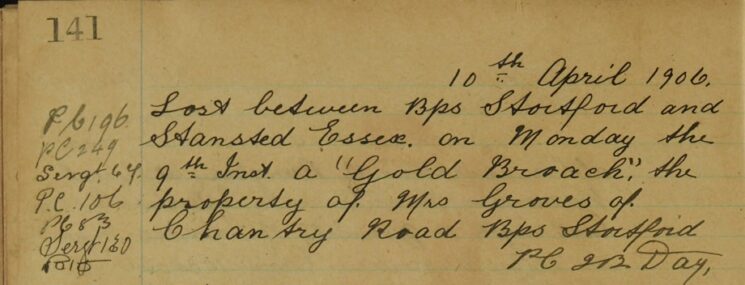 141
10th April 1906.
Lost between Bps Stortford and
Stansted Essex. on Monday the
9th Inst. a "Gold Broach", the
property of Mrs Groves of
Chantry Road Bps Stortford
PC 202 Day,
PC 196
PC 249
Sergt 64
P.C. 106
PC 83
Sergt 130